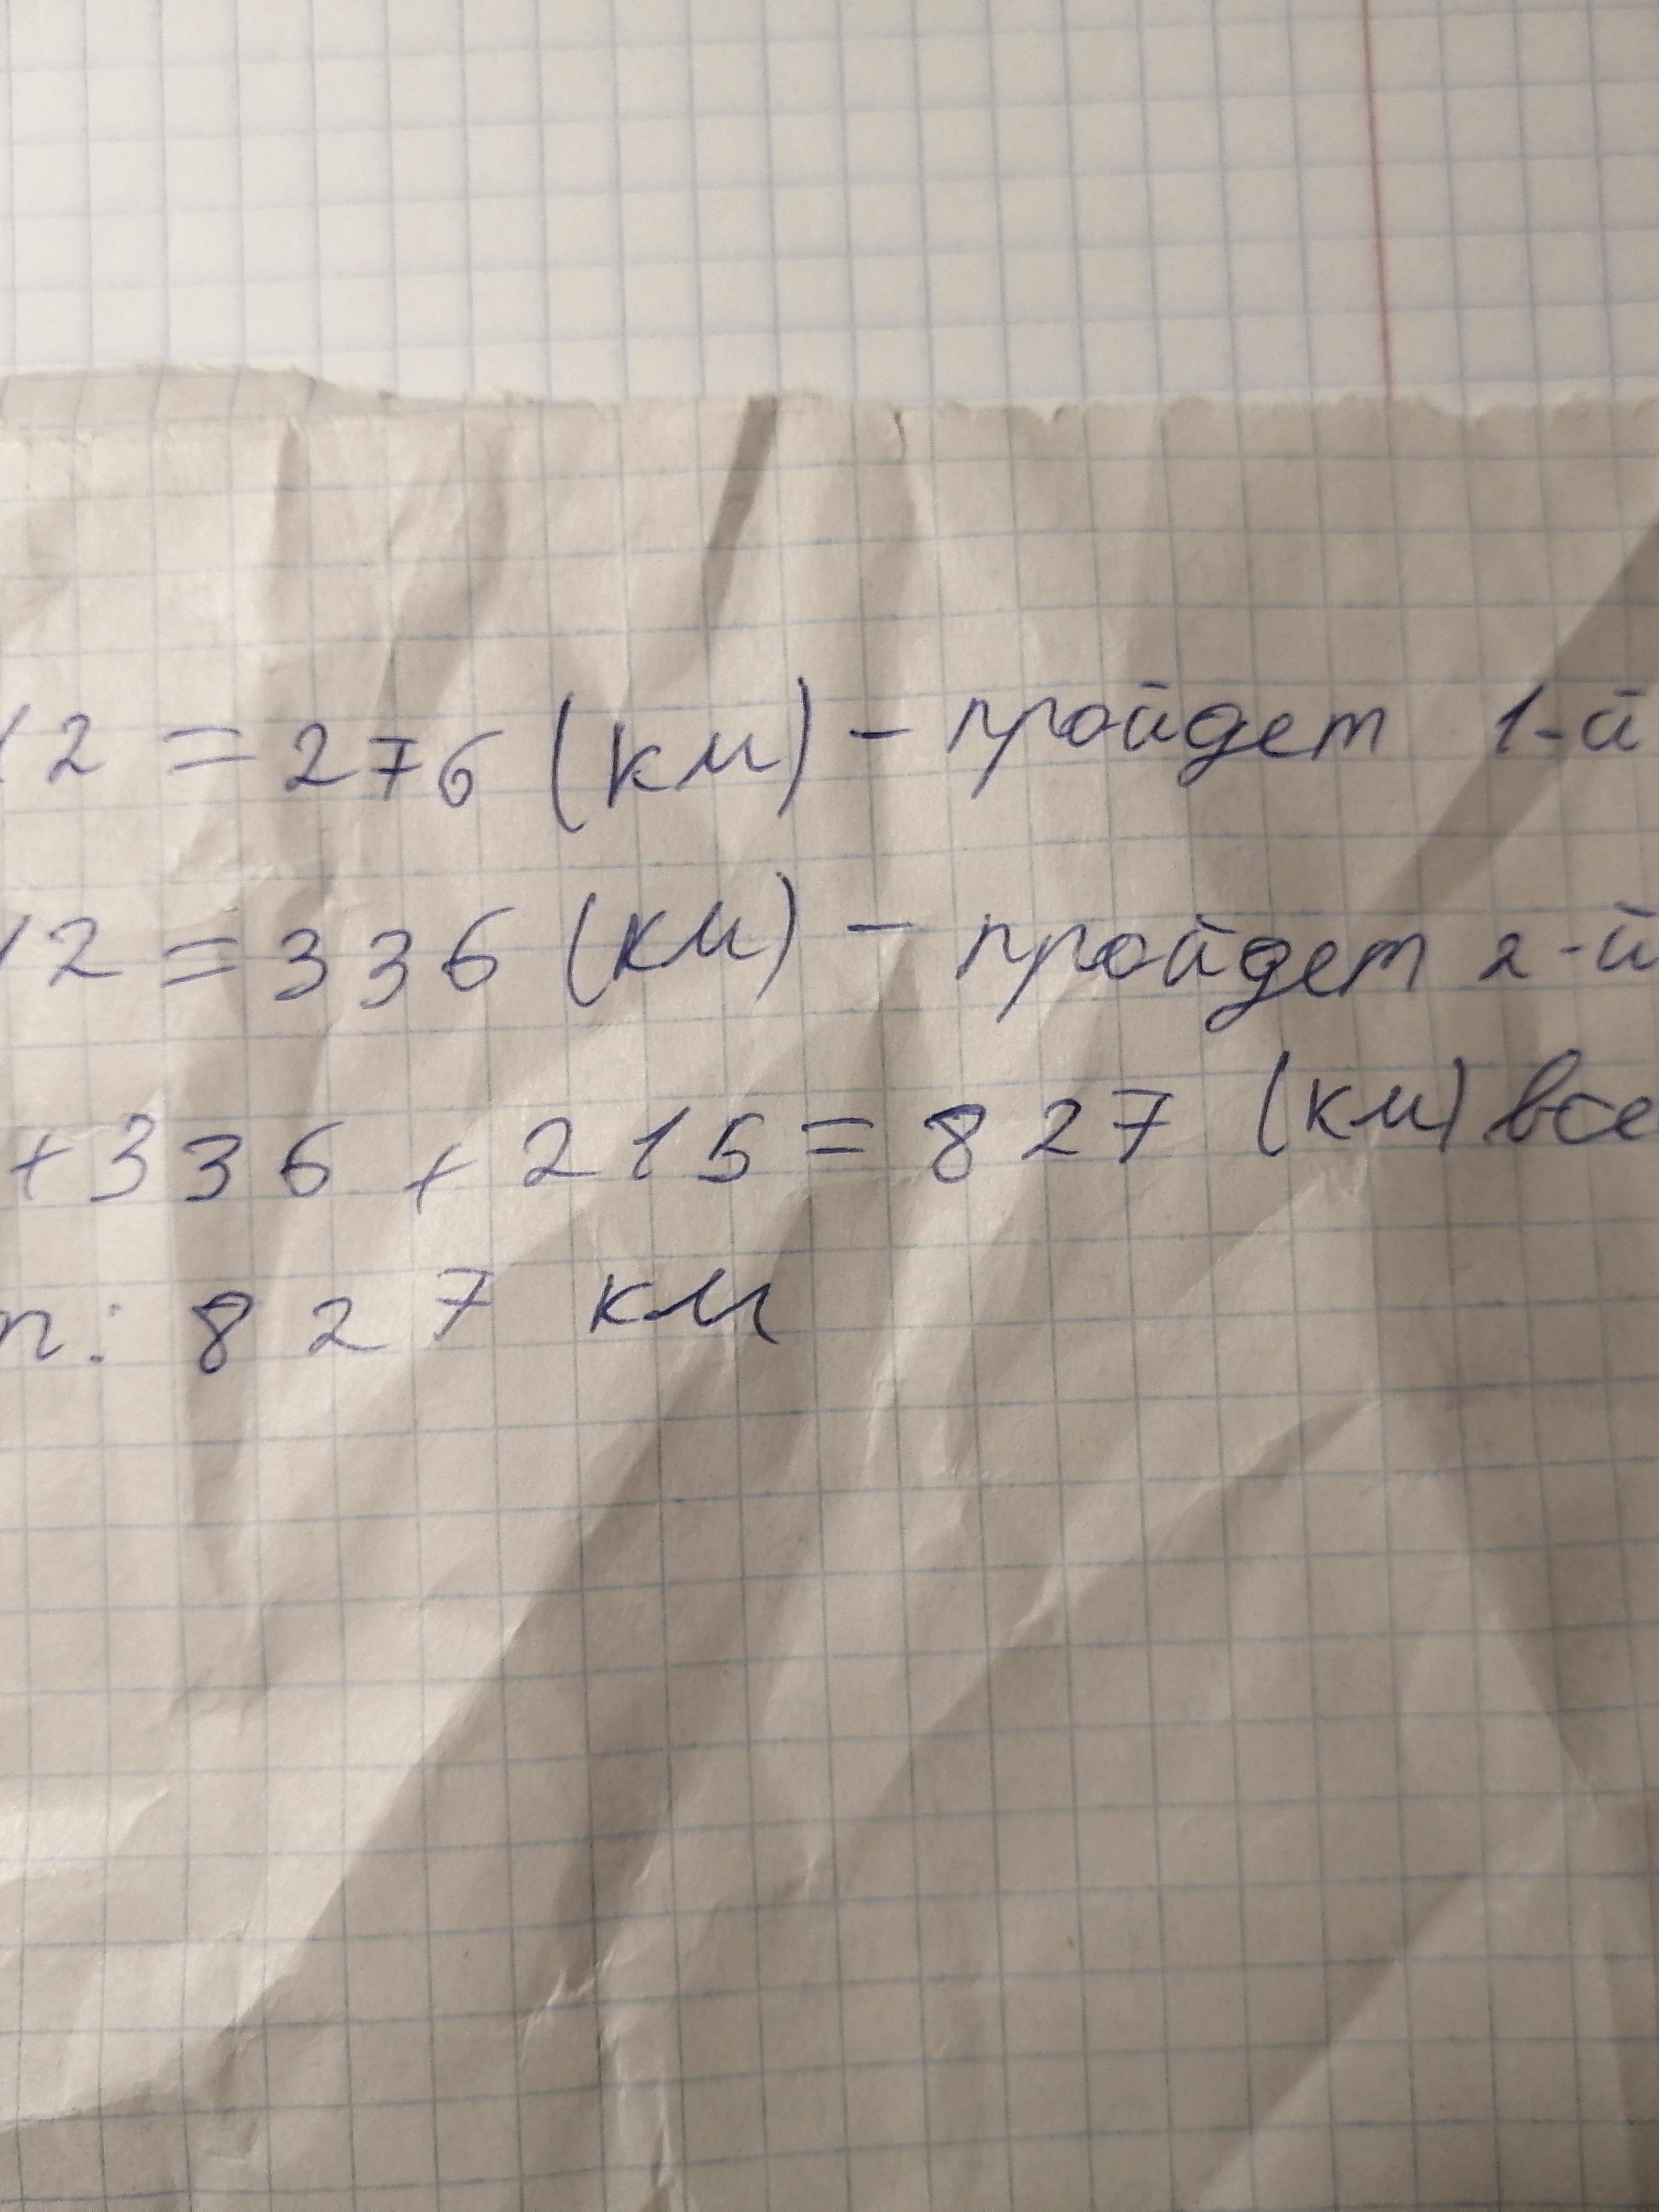 12 = 276 (км) - пройдет 1-й
12 = 336 (км) - пройдет 2-й
+ 336 + 215 = 827 (км) все
т: 827 км